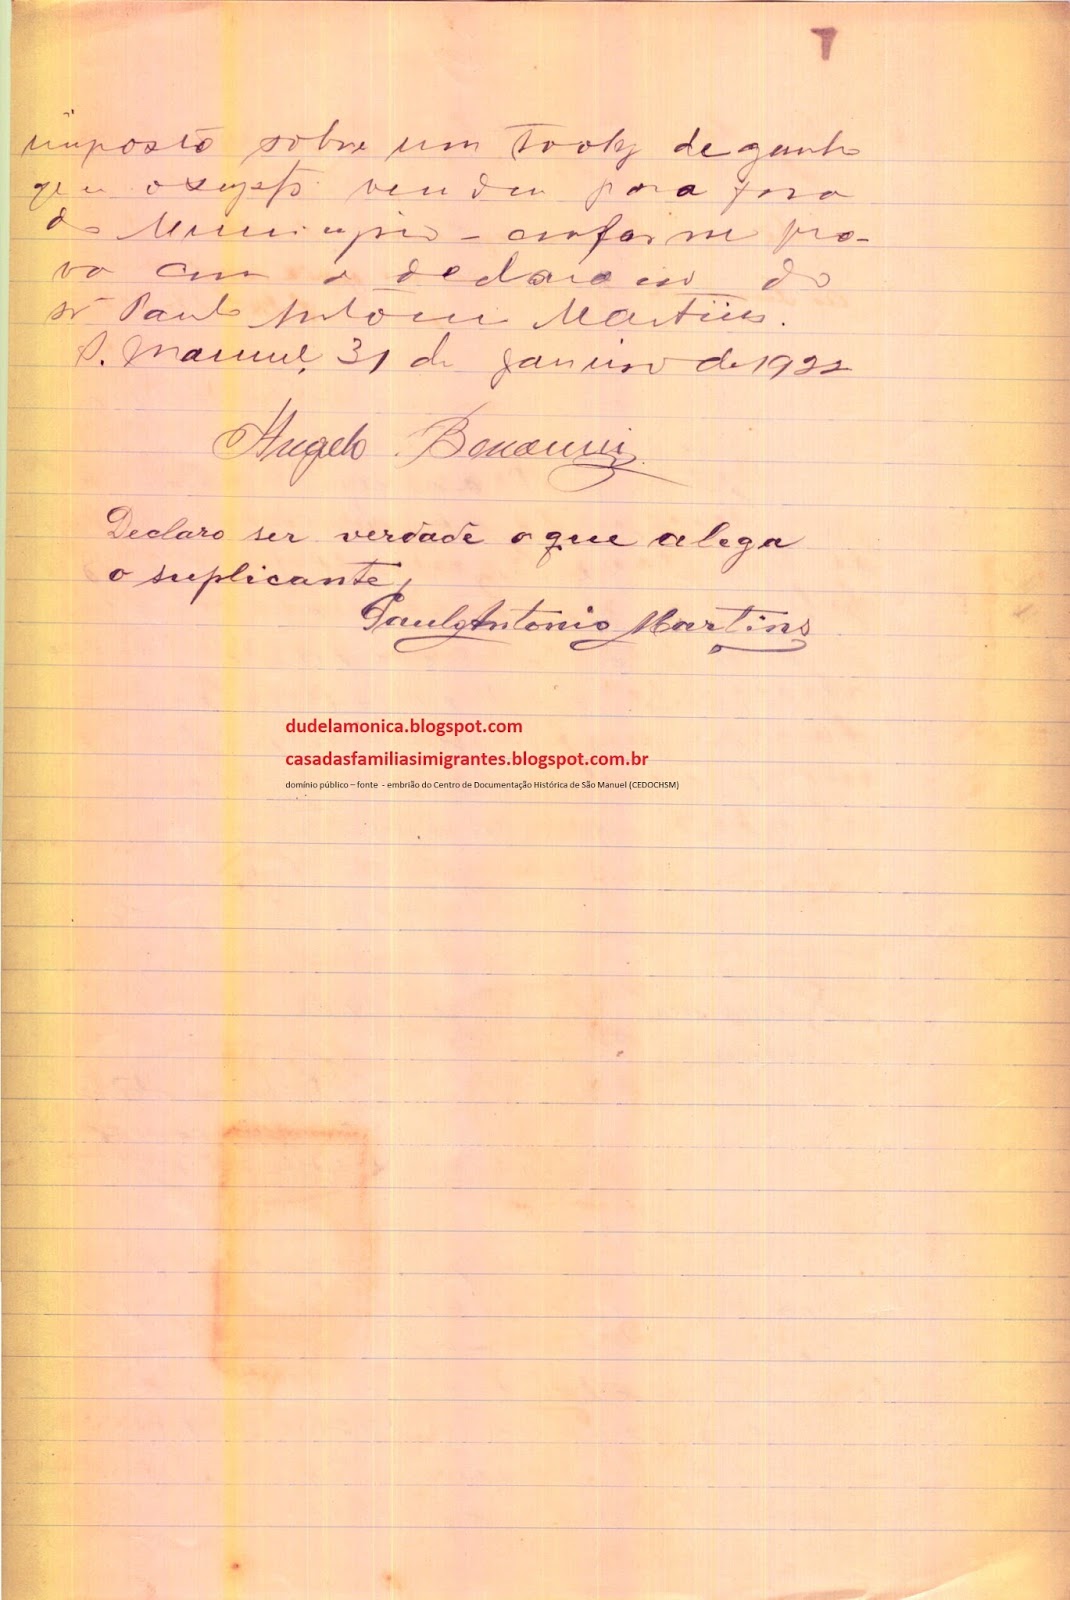 7
imposto sobre um Trolly de ganho
que o sujeito vendeu para fora
do Municipio - conforme pro-
va com a declaração do
sr Paulo Antonio Martins.
S. Manuel, 31 de Janeiro de 1922
Angelo
Declaro ser verdade o que alega
o suplicante,
Paulo Antonio Martins
dudelamonica.blogspot.com
casadasfamiliasimigrantes.blogspot.com.br
domínio público – fonte - embrião do Centro de Documentação Histórica de São Manuel (CEDOCHSM)